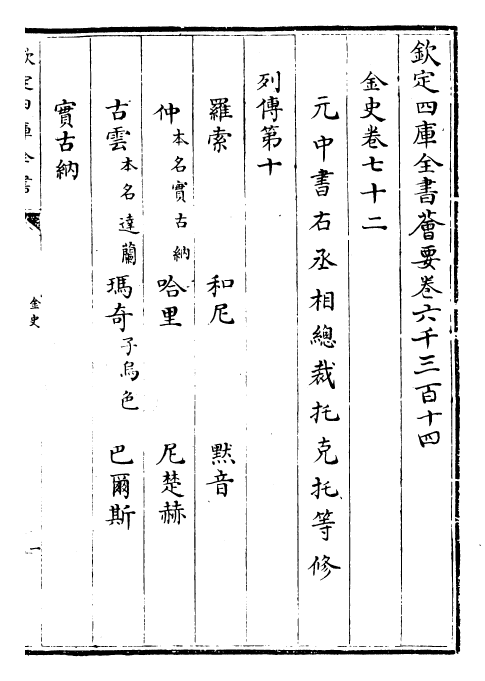 欽定四庫全書薈要卷六千三百十四
金史卷七十二
元中書右丞相總裁托克托等修
列傳第十
羅索 和尼 默音
仲本名實古納 哈里 尼楚赫
古雲本名達蘭 瑪奇子烏色 巴爾斯
實古納
欽定四庫全書
金史
一